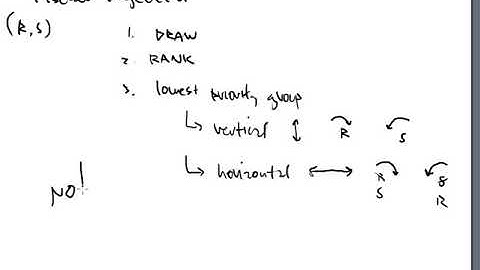 (R,S)
1. DRAW
2. RANK
3. lowest priority group
↳ vertical ↕ R S
↳ horizontal ↔ R S
S R
NO!